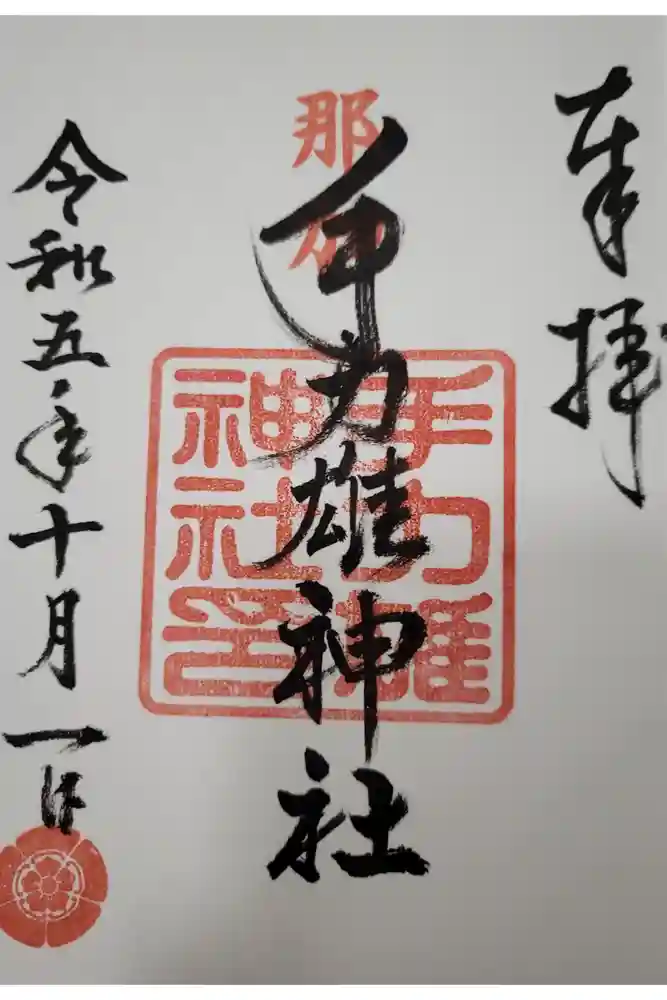 奉拝
那加
手力雄神社
手力雄
神社印
令和五年十月一日